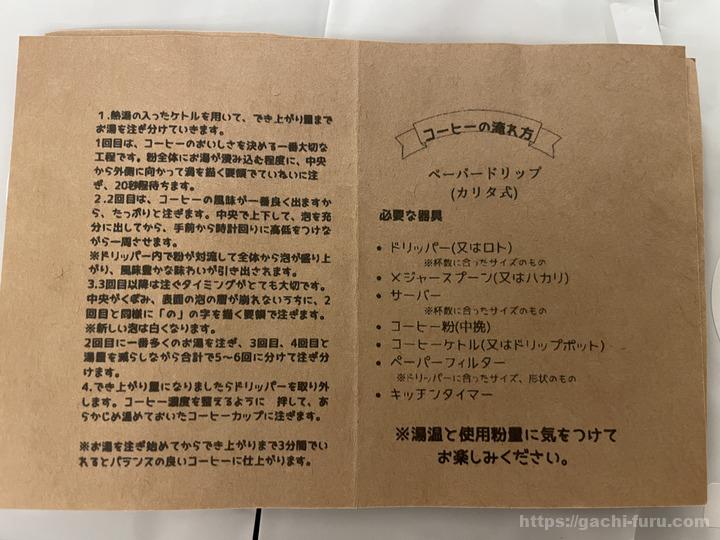 1.熱湯の入ったケトルを用いて、でき上がり量まで
お湯を注ぎ分けていきます。
1回目は、コーヒーのおいしさを決める一番大切な
工程です。粉全体にお湯が浸み込む程度に、中央
から外側に向かって渦を描く要領でていねいに注
ぎ、20秒程待ちます。
2.2回目は、コーヒーの風味が一番良く出ますか
ら、たっぷりと注ぎます。中央で上下して、泡を充
分に出してから、手前から時計回りに高低をつけなが
ら一周させます。
※ドリッパー内で粉が対流して全体から泡が盛り上
がり、風味豊かな味わいが引き出されます。
3.3回目以降は注ぐタイミングがとても大切です。
中央がくぼみ、表面の泡の層が崩れないうちに、2
回目と同様に「の」の字を描く要領で注ぎます。
※新しい泡は白くなります。
2回目に一番多くのお湯を注ぎ、3回目、4回目と
湯量を減らしながら合計で5〜6回に分けて注ぎ分
けます。
4.でき上がり量になりましたらドリッパーを取り外
します。コーヒー濃度を整えるように 押して、あ
らかじめ温めておいたコーヒーカップに注ぎます。
※お湯を注ぎ始めてからでき上がりまで3分間でい
れるとバランスの良いコーヒーに仕上がります。
コーヒーの淹れ方
ペーパードリップ
(カリタ式)
必要な器具
• ドリッパー(又はロト)
※杯数に合ったサイズのもの
• メジャースプーン(又はハカリ)
• サーバー
※杯数に合ったサイズのもの
• コーヒー粉(中挽)
• コーヒーケトル(又はドリップポット)
• ペーパーフィルター
※ドリッパーに合ったサイズ、形状のもの
• キッチンタイマー
※湯温と使用粉量に気をつけて
お楽しみください。
https://gachi-furu.com